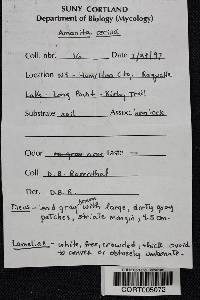 SUNY CORTLAND
Department of Biology (Mycology)
Amanita
Coll. nbr. Date
Location NY - Hamilton Cty. Raquette
Lake - Long Point - Kirby Trail
Substrate soil Assoc. hemlock
Odor Taste
Coll. D.B.
Det. D.B.R.
Pileus - and gray brown with large, dirty gray
patches, striate margin, 4.5 cm.
Lamellae - white, free, crowded, thick
to convex or obtusely
CORT005072